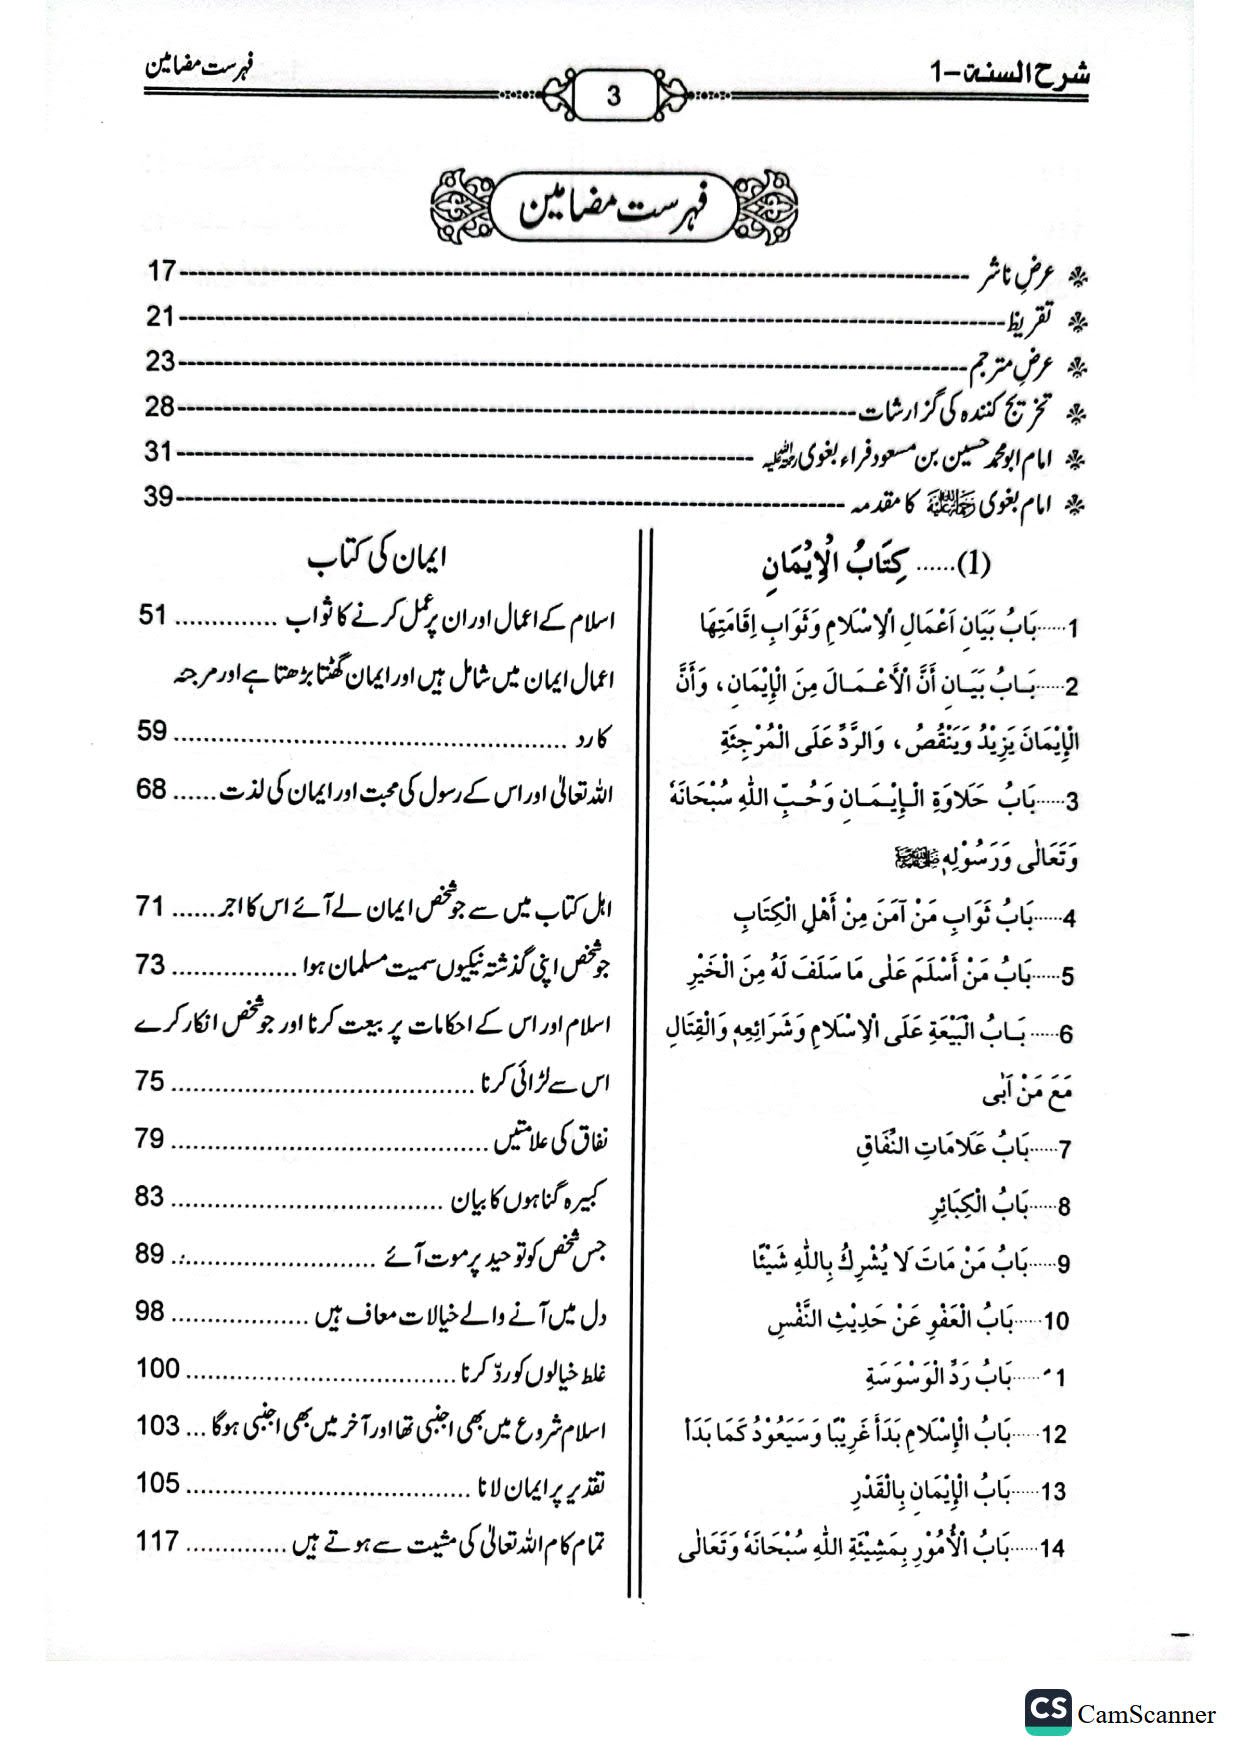 شرح السنة–1
3
فہرست مضامین
فہرست مضامین
عرضِ ناشر ---------- 17
تقریظ ---------- 21
عرضِ مترجم ---------- 23
تخریج کنندہ کی گزارشات ---------- 28
امام ابو محمد حسین بن مسعود فراء بغوی رحمہ اللہ ---------- 31
امام بغوی رحمہ اللہ کا مقدمہ ---------- 39
(1)...... كِتَابُ الْإِيْمَانِ
ایمان کی کتاب
1......بَابُ بَيَانِ اَعْمَالِ الْاِسْلَامِ وَثَوَابِ اِقَامَتِهَا
اسلام کے اعمال اور ان پر عمل کرنے کا ثواب ............. 51
2......بَابُ بَيَانِ أَنَّ الْأَعْمَالَ مِنَ الْإِيْمَانِ، وَأَنَّ
اعمال ایمان میں شامل ہیں اور ایمان گھٹتا بڑھتا ہے اور مرجئہ
الْإِيْمَانَ يَزِيْدُ وَيَنْقُصُ، وَالرَّدُّ عَلَى الْمُرْجِئَةِ
کا رد ............. 59
3......بَابُ حَلَاوَةِ الْإِيْمَانِ وَحُبِّ اللّٰهِ سُبْحَانَهٗ
اللہ تعالیٰ اور اس کے رسول کی محبت اور ایمان کی لذت ...... 68
وَتَعَالٰى وَرَسُوْلِهٖ ﷺ
4......بَابُ ثَوَابِ مَنْ آمَنَ مِنْ أَهْلِ الْكِتَابِ
اہل کتاب میں سے جو شخص ایمان لے آئے اس کا اجر ...... 71
5......بَابُ مَنْ أَسْلَمَ عَلٰى مَا سَلَفَ لَهٗ مِنَ الْخَيْرِ
جو شخص اپنی گذشتہ نیکیوں سمیت مسلمان ہوا ............. 73
6......بَابُ الْبَيْعَةِ عَلَى الْاِسْلَامِ وَشَرَائِعِهٖ وَالْقِتَالِ
اسلام اور اس کے احکامات پر بیعت کرنا اور جو شخص انکار کرے
مَعَ مَنْ اَبٰى
اس سے لڑائی کرنا ............. 75
7......بَابُ عَلَامَاتِ النِّفَاقِ
نفاق کی علامتیں ............. 79
8......بَابُ الْكَبَائِرِ
کبیرہ گناہوں کا بیان ............. 83
9......بَابُ مَنْ مَاتَ لَا يُشْرِكُ بِاللّٰهِ شَيْئًا
جس شخص کو توحید پر موت آئے ............. 89
10......بَابُ الْعَفْوِ عَنْ حَدِيْثِ النَّفْسِ
دل میں آنے والے خیالات معاف ہیں ............. 98
1......بَابُ رَدِّ الْوَسْوَسَةِ
غلط خیالوں کو ردّ کرنا ............. 100
12......بَابُ الْإِسْلَامِ بَدَأَ غَرِيْبًا وَسَيَعُوْدُ كَمَا بَدَأَ
اسلام شروع میں بھی اجنبی تھا اور آخر میں بھی اجنبی ہوگا ... 103
13......بَابُ الْإِيْمَانِ بِالْقَدْرِ
تقدیر پر ایمان لانا ............. 105
14......بَابُ الْأُمُوْرِ بِمَشِيْئَةِ اللّٰهِ سُبْحَانَهٗ وَتَعَالٰى
تمام کام اللہ تعالیٰ کی مشیت سے ہوتے ہیں ............. 117
CS CamScanner